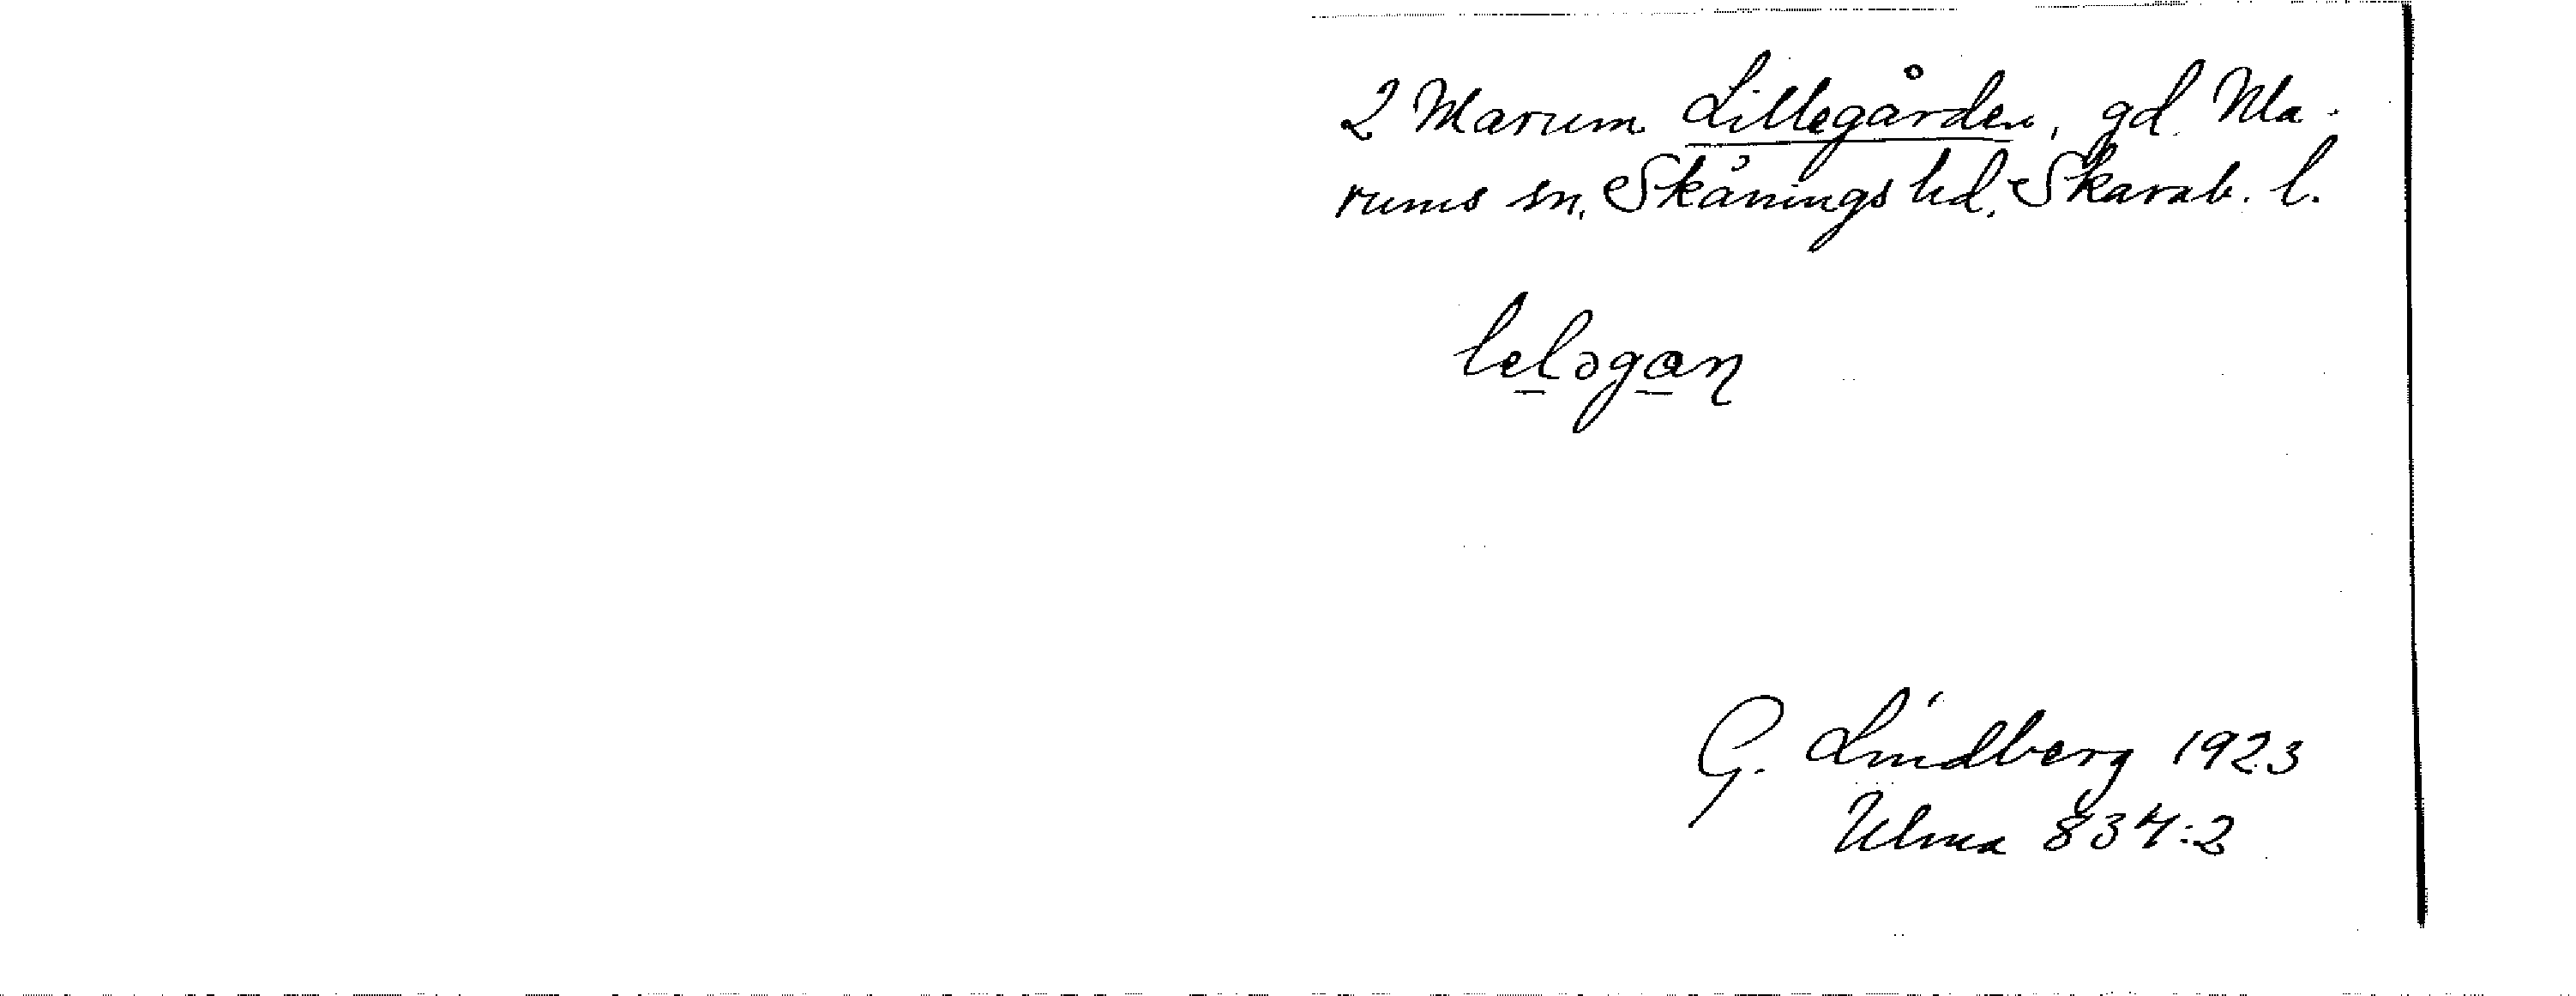 2 Marum Lillegården, gd. Ma-
rums sn, Skånings hd, Skarab. l.
leləgan
G. Lindberg 1923
Ulma 834:2